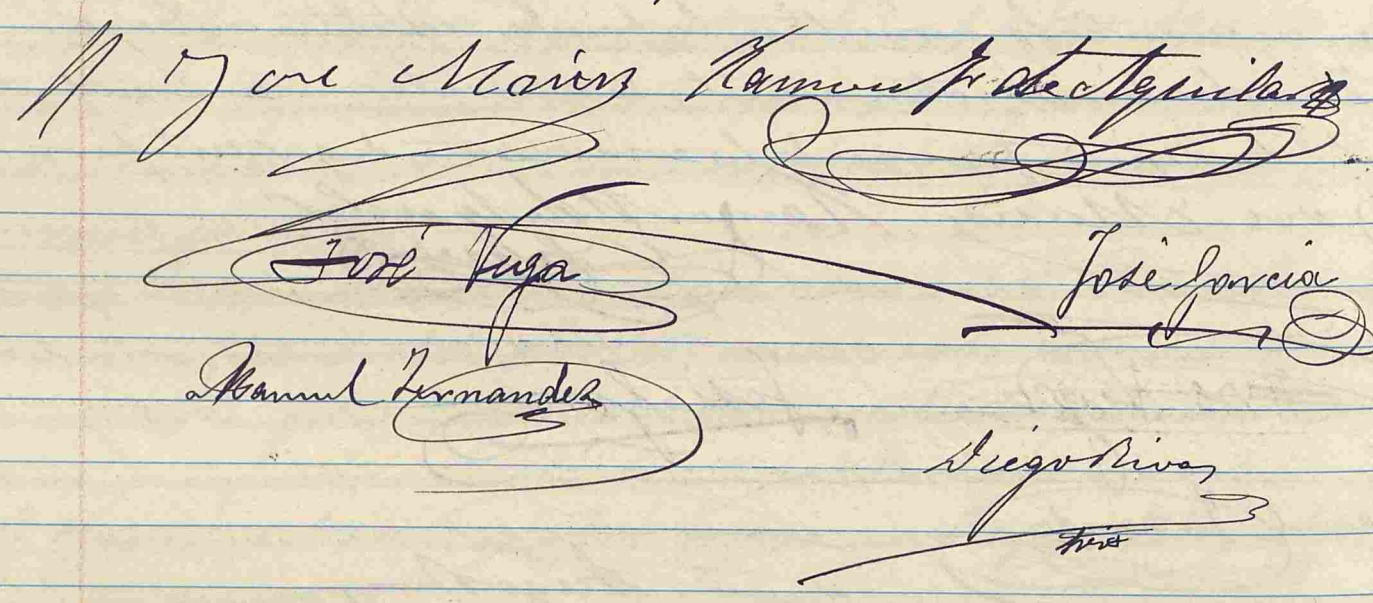 José Ramon F. de Aguilar
José Vega José Garcia
Manuel Fernandez
Diego Rivas